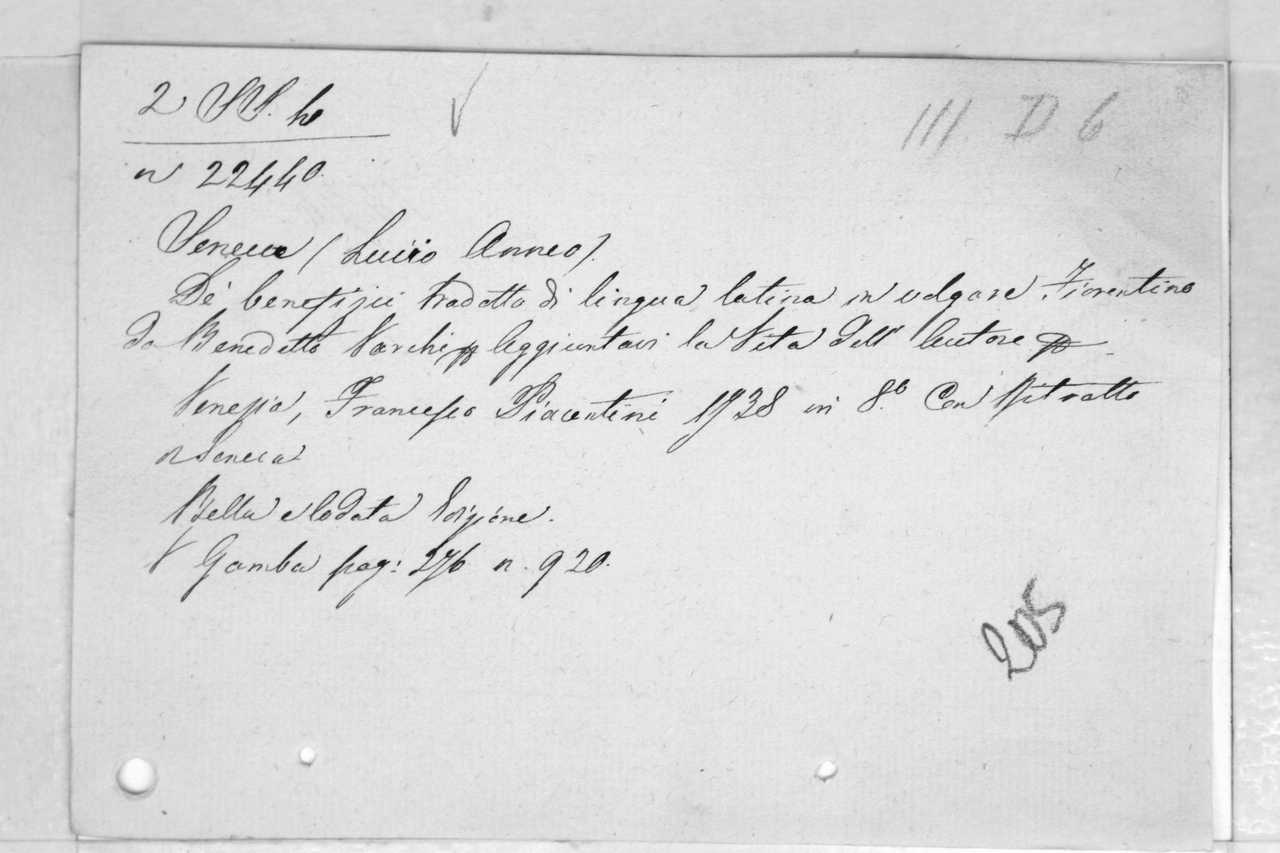 2 SS. he
III D 6
n 22440.
Seneca (Lucio Anneo).
De' benefizii tradotto di lingua latina in volgare Fiorentino
da Benedetto Varchi Aggiuntavi la Vita dell' Autore
Venezia, Francesco Piacentini 1738 in 8.º Con Ritratto
Seneca
Bella e lodata Edizione.
V Gamba pag: 276 n. 920.
205